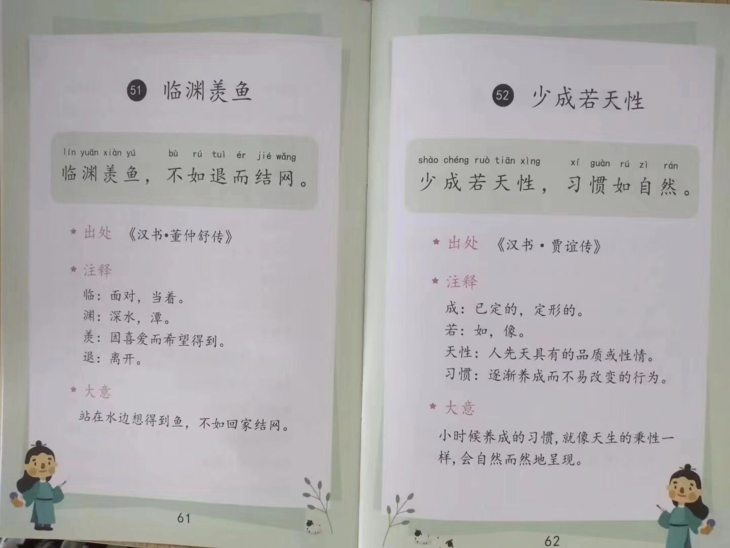 51 临渊羡鱼
lín yuān xiàn yú bù rú tuì ér jié wǎng
临渊羡鱼，不如退而结网。
* 出处 《汉书·董仲舒传》
* 注释
临：面对，当着。
渊：深水，潭。
羡：因喜爱而希望得到。
退：离开。
* 大意
站在水边想得到鱼，不如回家结网。
61
52 少成若天性
shào chéng ruò tiān xìng xí guàn rú zì rán
少成若天性，习惯如自然。
* 出处 《汉书·贾谊传》
* 注释
成：已定的，定形的。
若：如，像。
天性：人先天具有的品质或性情。
习惯：逐渐养成而不易改变的行为。
* 大意
小时候养成的习惯，就像天生的秉性一
样，会自然而然地呈现。
62